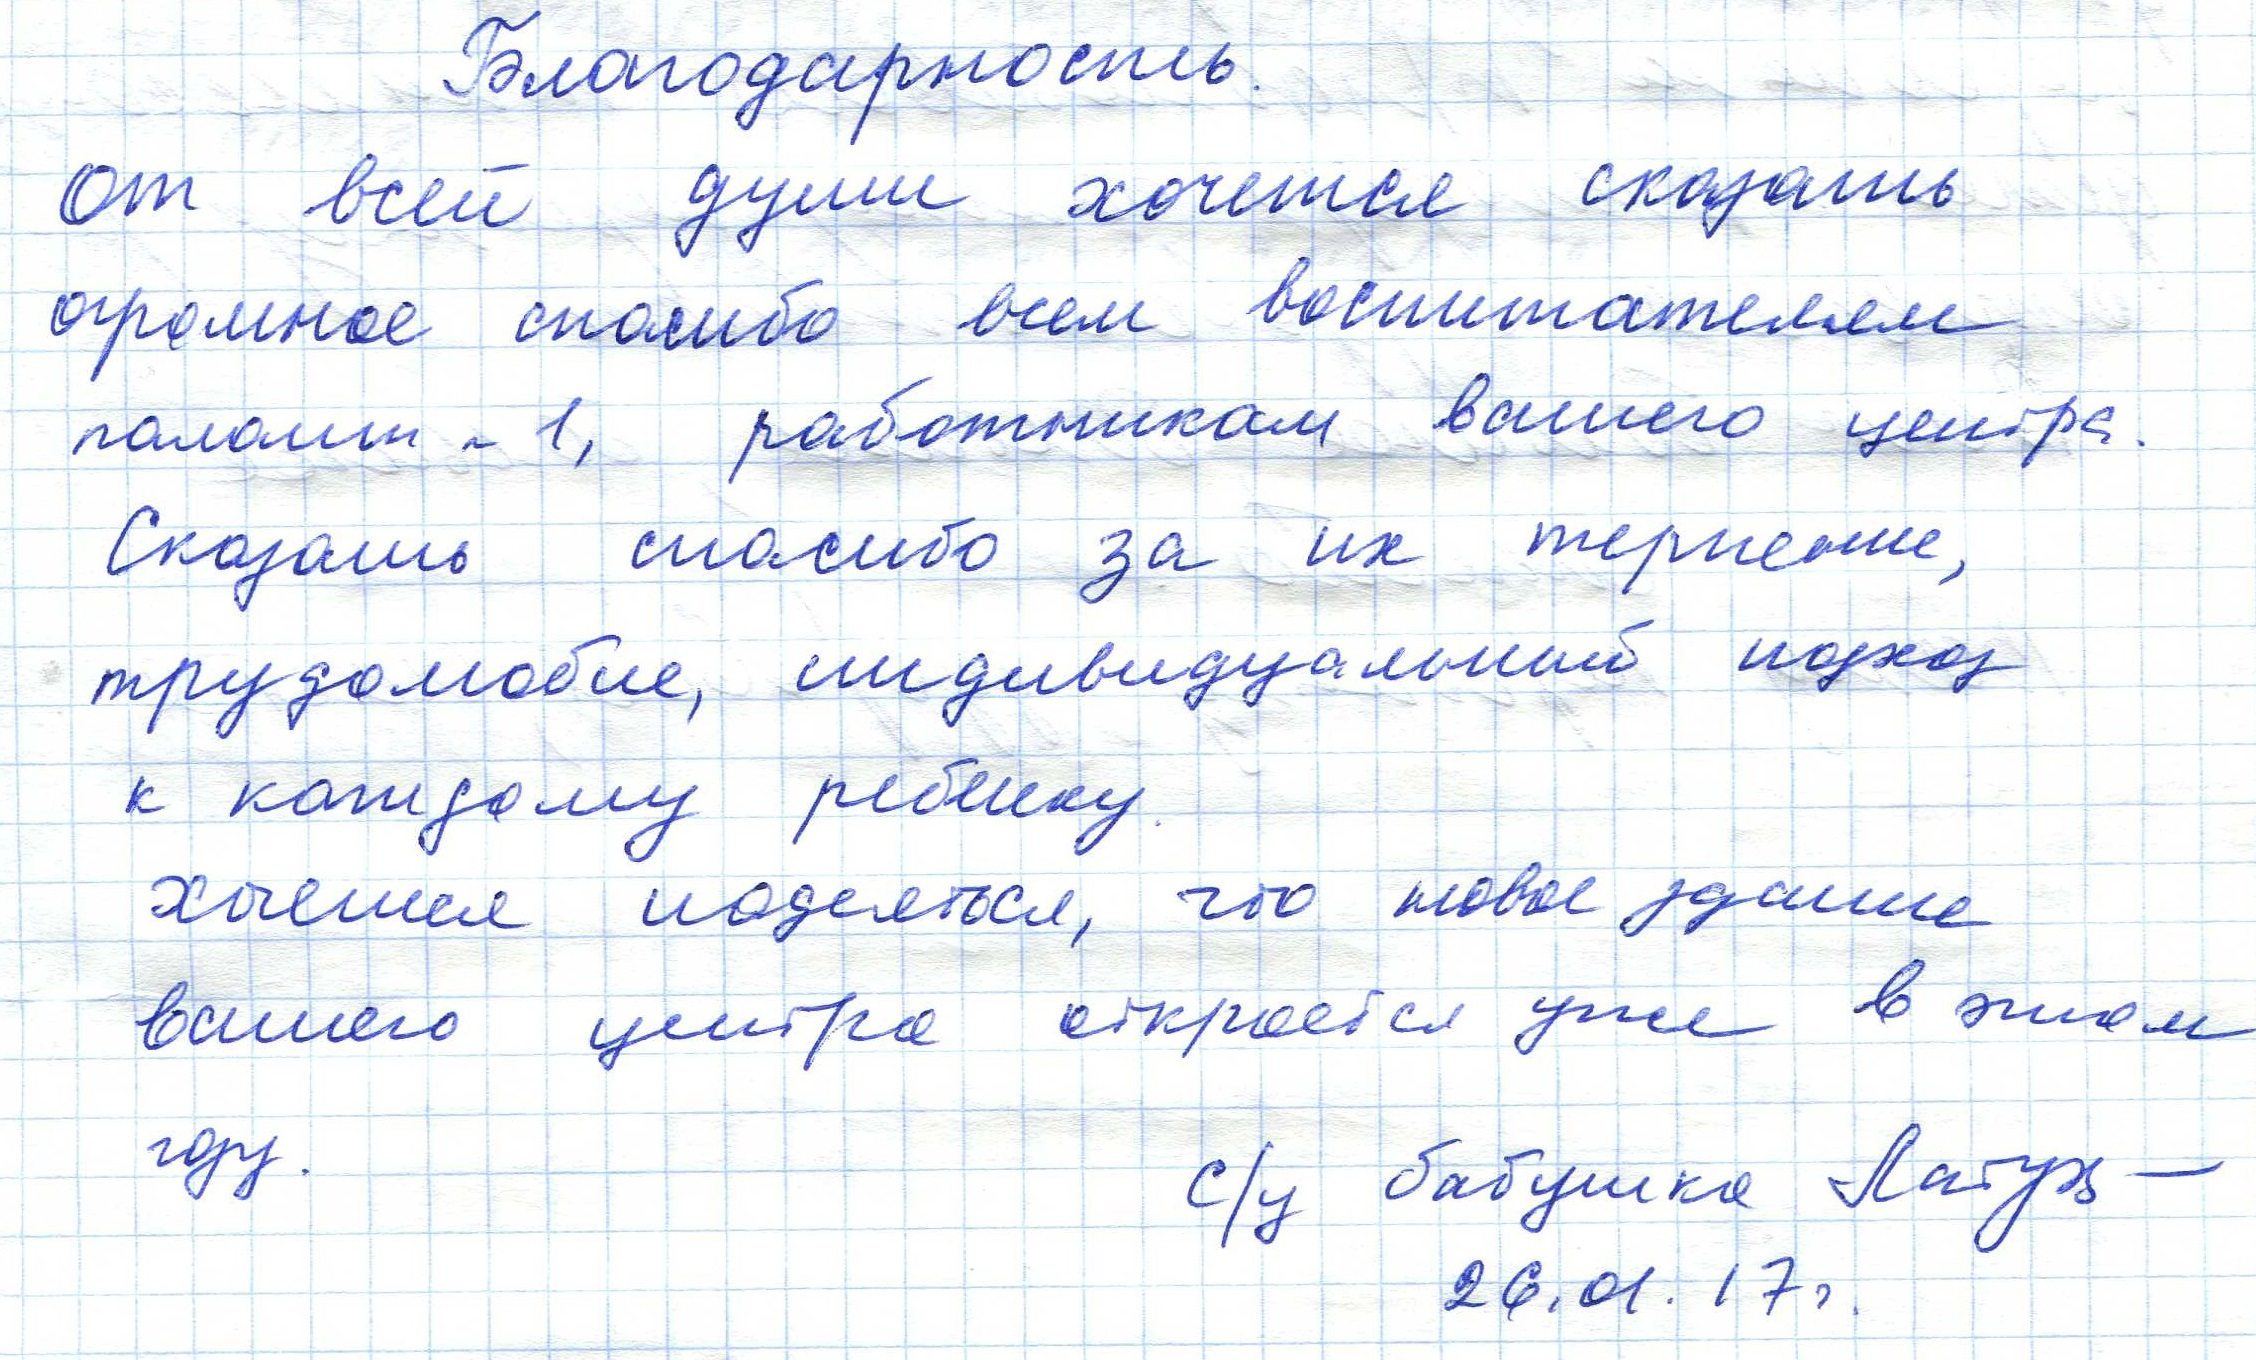 Благодарность.
От всей души хочется сказать
огромное спасибо всем воспитателям
палаты - 1, работникам вашего центра.
Сказать спасибо за их терпение,
трудолюбие, индивидуальный подход
к каждому ребенку.
Хочется надеяться, что новое здание
вашего центра откроется уже в этом
году.
с/у бабушка
26.01.17г.